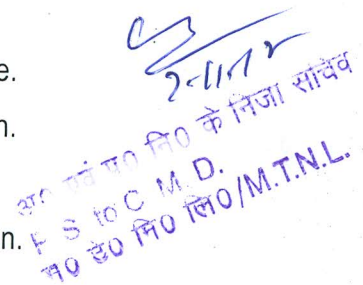 e.
n.
n.
2-11-12
अ० एवं प्र० नि० के निजी सचिव
P S to C M. D.
म० टे० नि० लि०/M.T.N.L.